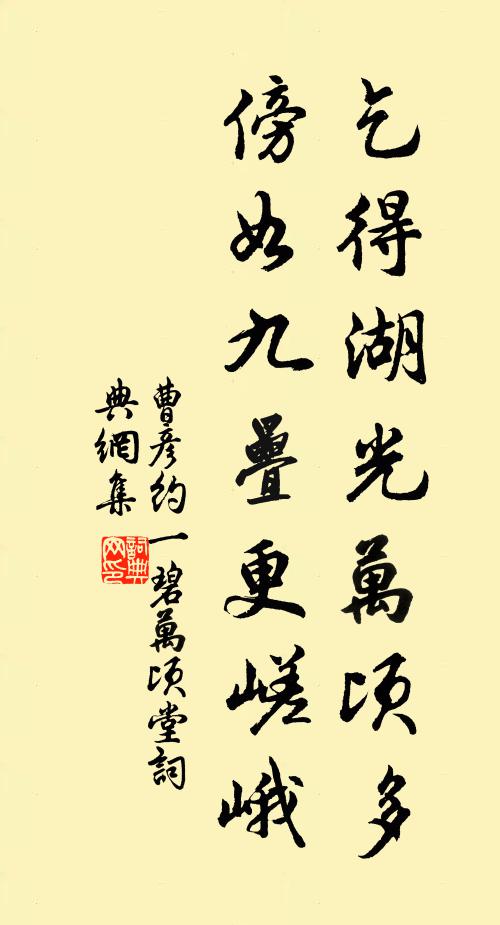 乞得湖光萬頃多
傍如九疊更嵯峨
曹彥約一碧萬頃堂詞
典網集
詞典
网印